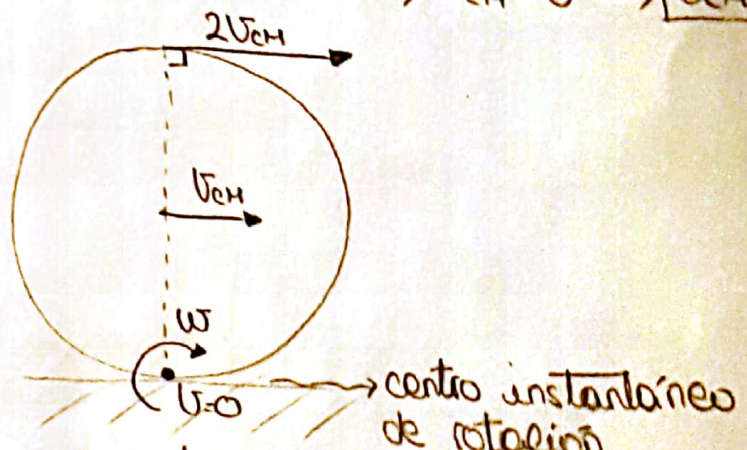 2Vcм
Vcм
ω
V=0
centro instantáneo
de rotación